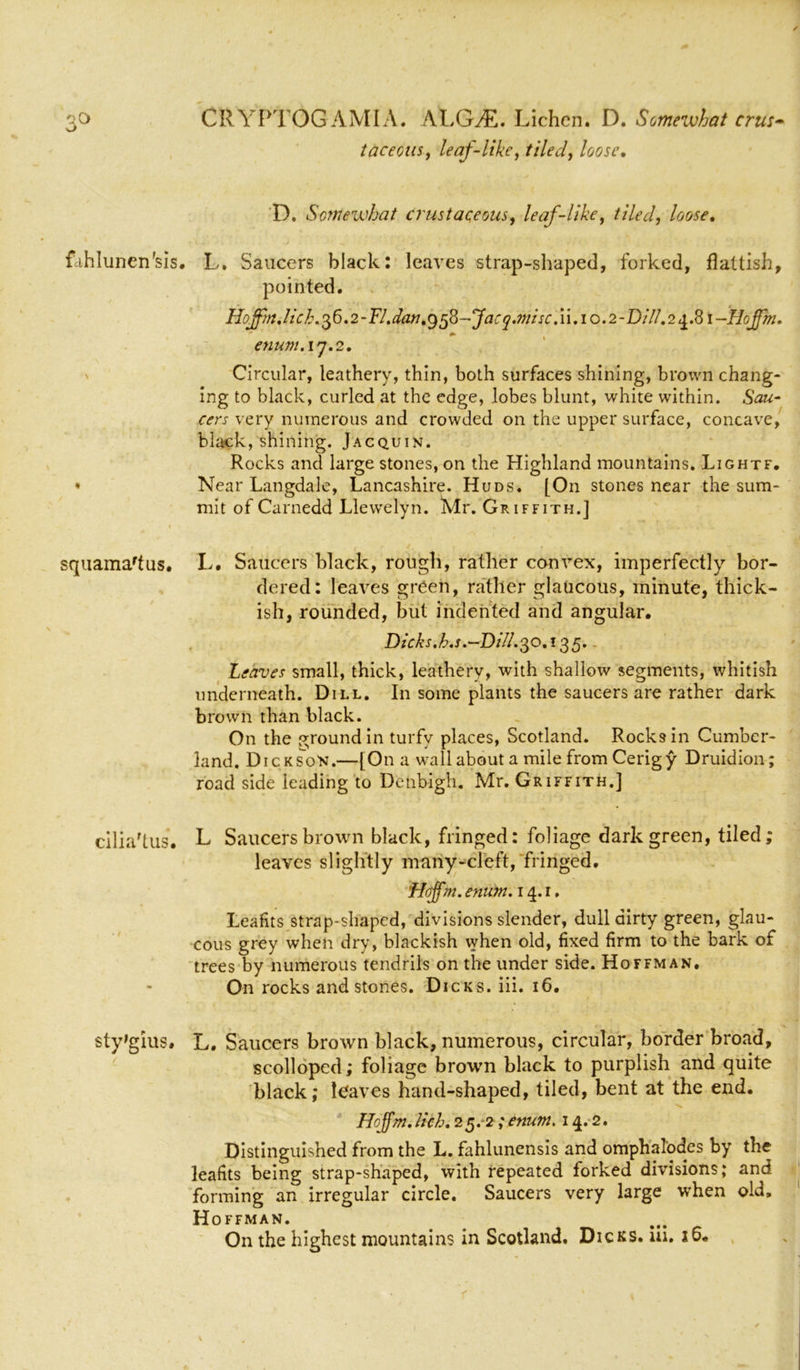 30 CRYPTOGAMIA. ALGÆ. Lichen. D. Somewhat crus-
taceous, leaf-like, tiled, loose.
D. Somewhat crustaceous, leaf-like, tiled, loose.
fahlunen'sis. L. Saucers black: leaves strap-shaped, forked, flattish,
pointed.
Hoffm.lich.36.2-Fl.dan.958-Jacq.misc.ii.10.2-Dill.24.81-Hoffm.
enum.17.2.
Circular, leathery, thin, both surfaces shining, brown chang-
ing to black, curled at the edge, lobes blunt, white within. Sau-
cers very numerous and crowded on the upper surface, concave,
black, shining. JACQUIN.
Rocks and large stones, on the Highland mountains. LIGHTF.
Near Langdale, Lancashire. HUDS. [On stones near the sum-
mit of Carnedd Llewelyn. Mr. GRIFFITH.]
squama'tus. L. Saucers black, rough, rather convex, imperfectly bor-
dered: leaves green, rather glaucous, minute, thick-
ish, rounded, but indented and angular.
Dicks.h.s.-Dill.30.135.
Leaves small, thick, leathery, with shallow segments, whitish
underneath. DILL. In some plants the saucers are rather dark
brown than black.
On the ground in turfy places, Scotland. Rocks in Cumber-
land. DICKSON.—[On a wall about a mile from Cerig ŷ Druidion;
road side leading to Denbigh. Mr. GRIFFITH.]
cilia'tus. L Saucers brown black, fringed: foliage dark green, tiled;
leaves slightly many-cleft, fringed.
Hoffm. enum. 14.1.
Leafits strap-shaped, divisions slender, dull dirty green, glau-
cous grey when dry, blackish when old, fixed firm to the bark of
trees by numerous tendrils on the under side. HOFFMAN.
On rocks and stones. DICKS. iii. 16.
sty'gius. L. Saucers brown black, numerous, circular, border broad,
scolloped; foliage brown black to purplish and quite
black; leaves hand-shaped, tiled, bent at the end.
Hoffm. lich. 25.2; enum. 14.2.
Distinguished from the L. fahlunensis and omphalodes by the
leafits being strap-shaped, with repeated forked divisions; and
forming an irregular circle. Saucers very large when old.
HOFFMAN.
On the highest mountains in Scotland. DICKS. iii. 16.